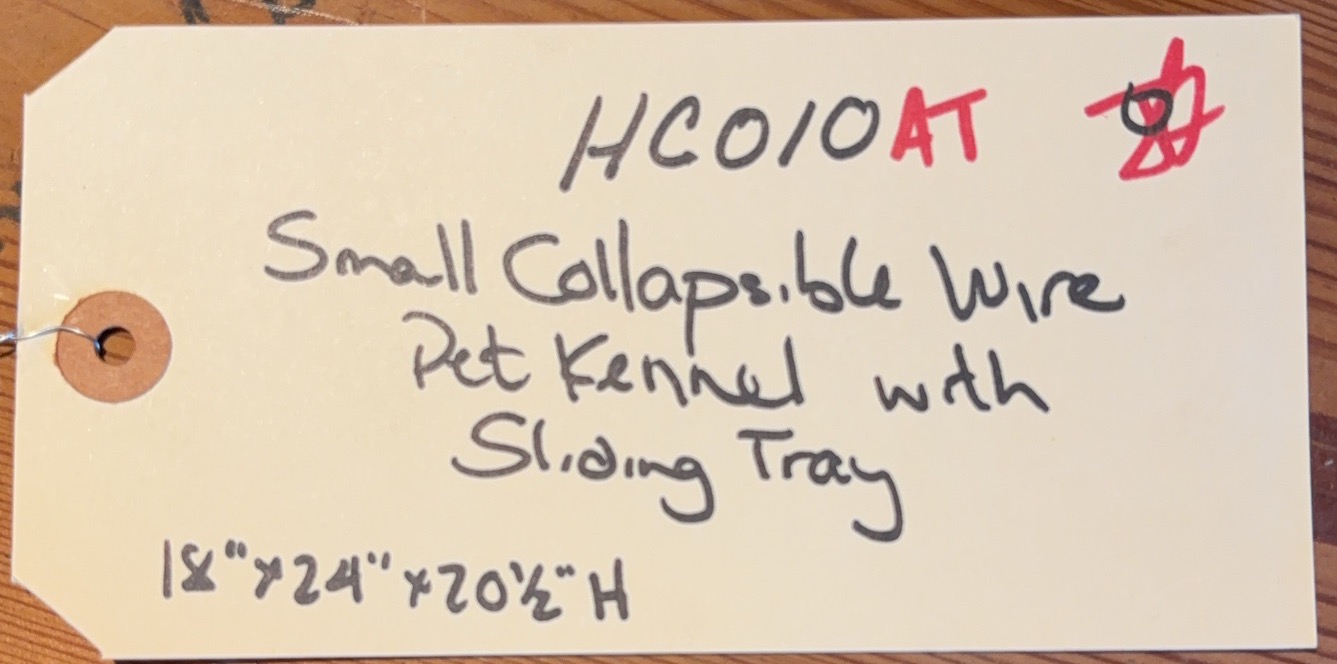 HC010AT
Small Collapsible Wire
Pet Kennel with
Sliding Tray
18"x24"x20½"H